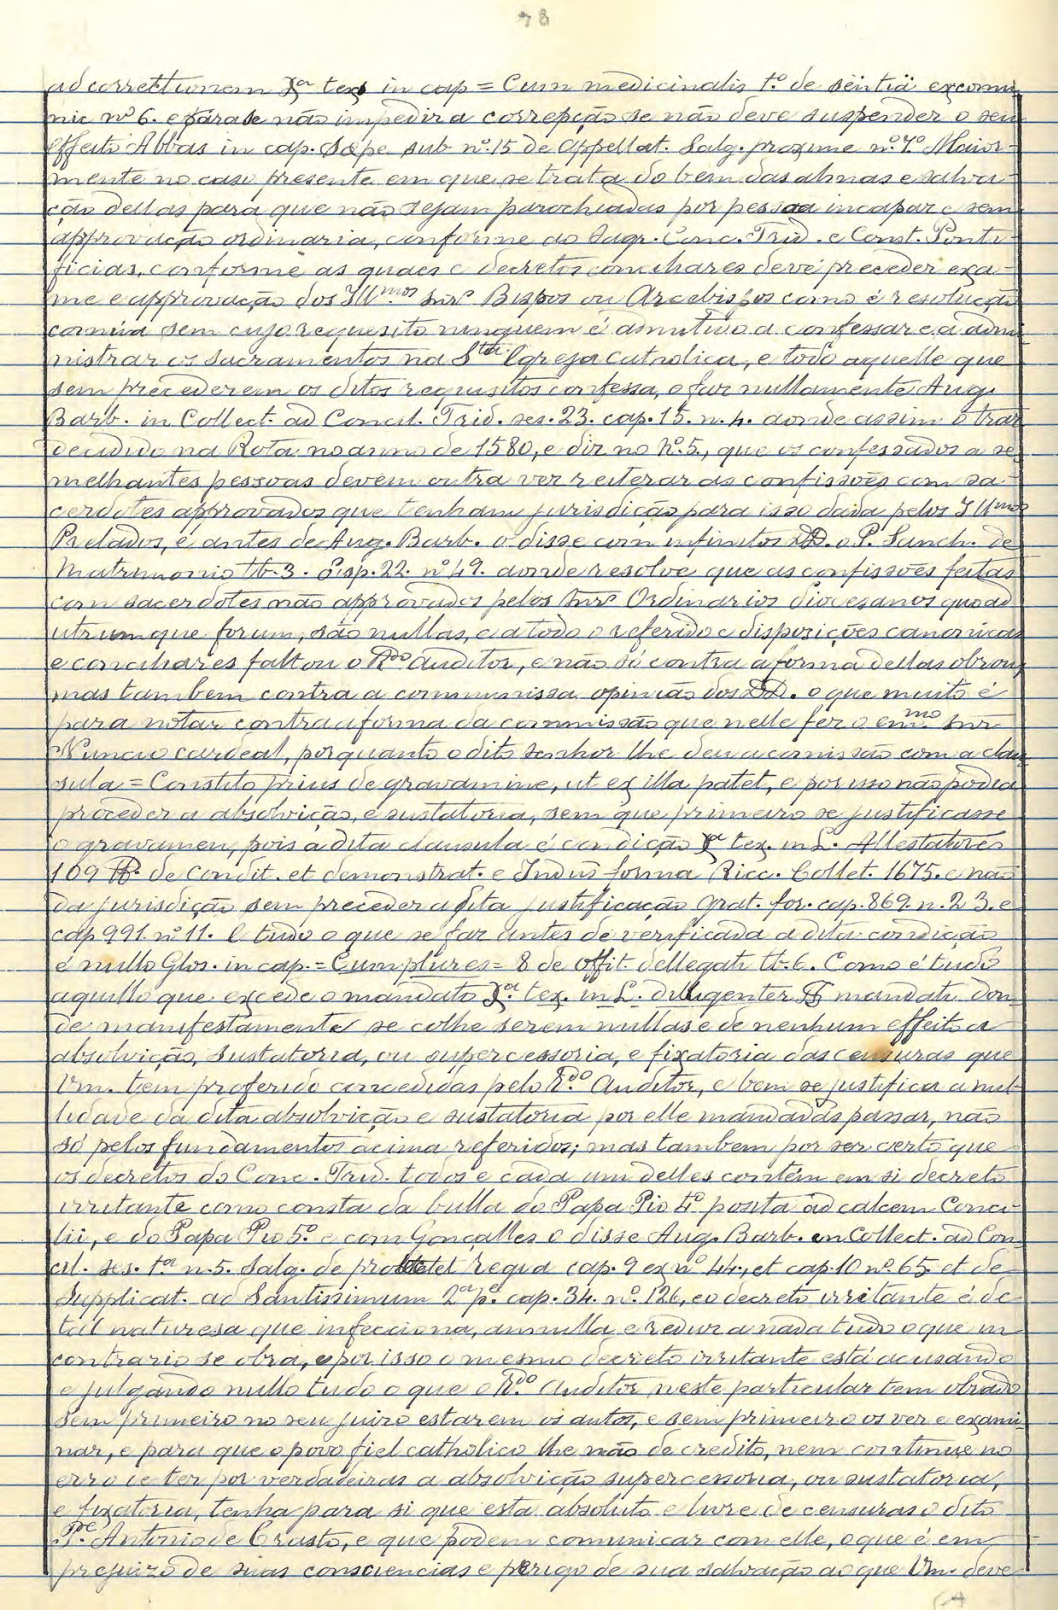 78
ad correttionem Xª tex in cap = Cum medicinalis t.º de sëntiä excomu
nic nº 6. e para se não impedir a correpção se não deve suspender o seu
effeito Abbas in cap. Sæpe sub nº 15 de Appellat. Salg. proxime nº 7.º Maior-
mente no caso presente em que se trata do bem das almas e salva-
ção dellas para que não sejam parochiadas por pessoa incapax e sem
approvação ordinaria, conforme ao Sagr. Conc. Trid. e Const. Ponti-
ficias, conforme as quaes e decretos conciliares deve preceder exa-
me e approvação dos Illmos Snrs Bispos ou Arcebispos como é resolução
comúa sem cujo requesito ninguem é admittido a confessar e a adm
nistrar os sacramentos na Sta Igreja catholica, e todo aquelle que
sem precederem os ditos requisitos confessa, o faz nullamente Aug.
Barb. in Collect. ad Concil. Trid. ses. 23. cap. 15. n. 4. aonde assim o traz
decidido na Rota no anno de 1580, e diz no Nº 5., que os confessados a se
melhantes pessoas devem outra vez reiterar as confissoẽs com sa-
cerdotes approvados que tenham jurisdição para isso dada pelos Illmos
Prelados, e antes de Aug. Barb. o disse com infinitos DD. o P. Sanch. de
Matrimonio lib. 3. disp. 22. nº 49. aonde resolve que as confissoẽs feitas
com sacerdotes não approvados pelos Snrs Ordinarios diocesanos quoad
utrumque forum, são nullas, e a todo o referido e disposições canonicas
e conciliares faltou o Rdo Auditor, e não só contra a forma dellas obrou,
mas tambem contra a communissa opinião dos DD. o que muito é
para notar contra a forma da commissão que nelle fez o emmo Snr
Nuncio cardeal, porquanto o dito senhor lhe deu a comissão com a clau
sula = Constito prius de gravamine, ut ex illa patet, e por isso não podia
proceder a absolvição, e sustatoria, sem que primeiro se justificasse
o gravamen, pois a dita clausula é condição Xª tex. in L. Allestatores
109 ff. de condit. et demonstrat. e Induz forma Ricc. Collet. 1675. e não
da jurisdição sem preceder a dita justificação Grat. for. cap. 869. n. 23. e
cap 991. nº 11. E tudo o que se faz antes de verificada a dita condição
é nullo Glos. in cap. = Cum plures = 8 de offit. dellegati lib. 6. Como é tudo
aquillo que excede o mandato Xª tex. in L. diligenter ff mandati. Don-
de manifestamente se colhe serem nullas e de nenhum effeito a
absolvição, sustatoria, ou supercessoria, e fixatoria das censuras que
Vm. tem proferido concedidas pelo Rdo Auditor, e bem se justifica a nul-
lidade da dita absolvição e sustatoria por elle mandadas passar, não
só pelos fundamentos acima referidos; mas tambem por ser certo que
os decretos do Conc. Trid. todos e cada um delles contém em si decreto
irritante como consta da bulla do Papa Pio 4º posita ad calcem Conci-
lii, e do Papa Pio 5º e com Gonçalles o disse Aug. Barb. in Collect. ad Con-
cil. ses. tª n. 5. Salg. de protet regia cap. 9 ex nº 44., et cap. 10 nº 65. et de
Supplicat. ad Santissimum 2ª pe. cap. 34. nº 126, e o decreto irritante é de
tal naturesa que infecciona, annulla e reduz a nada tudo o que in
contrario se obra, e por isso o mesmo decreto irritante está acusando
e julgando nullo tudo o que o Rdo Auditor neste particular tem obrado
sem primeiro no seu juizo estarem os autos, e sem primeiro os ver e exami
nar, e para que o povo fiel catholico lhe não de credito, nem continue no
erro de ter por verdadeiras a absolvição supercessoria, ou sustatoria,
e fixatoria, tenha para si que esta absoluto e livre de censuras o dito
Pe. Antonio de Crasto, e que podem comunicar com elle, o que é em
prejuizo de suas consciencias e perigo de sua salvação ao que Vm. deve